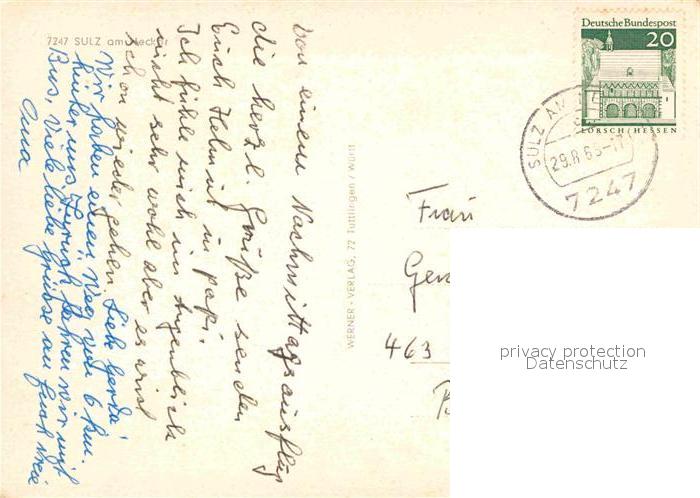 7247 SULZ am Neckar
Von einem Nachmittagsausflug
die herzl. Grüße senden
Erich Helmut u papi.
Ich fühle mich im Augenblick
nicht sehr wohl aber es wird
schon wieder gehen.
Lieb Gerda,
Wir haben einen Weg von 6 km.
hinter uns. Zurück fahren wir mit
Bus, Viele liebe Grüsse an Euch
Oma
WERNER - VERLAG, 72 Tuttlingen / Württ
Deutsche Bundespost
20
LORSCH / HESSEN
SULZ AM
29.8.6
-17
7247
Frau
Ger
463
privacy protection
Datenschutz